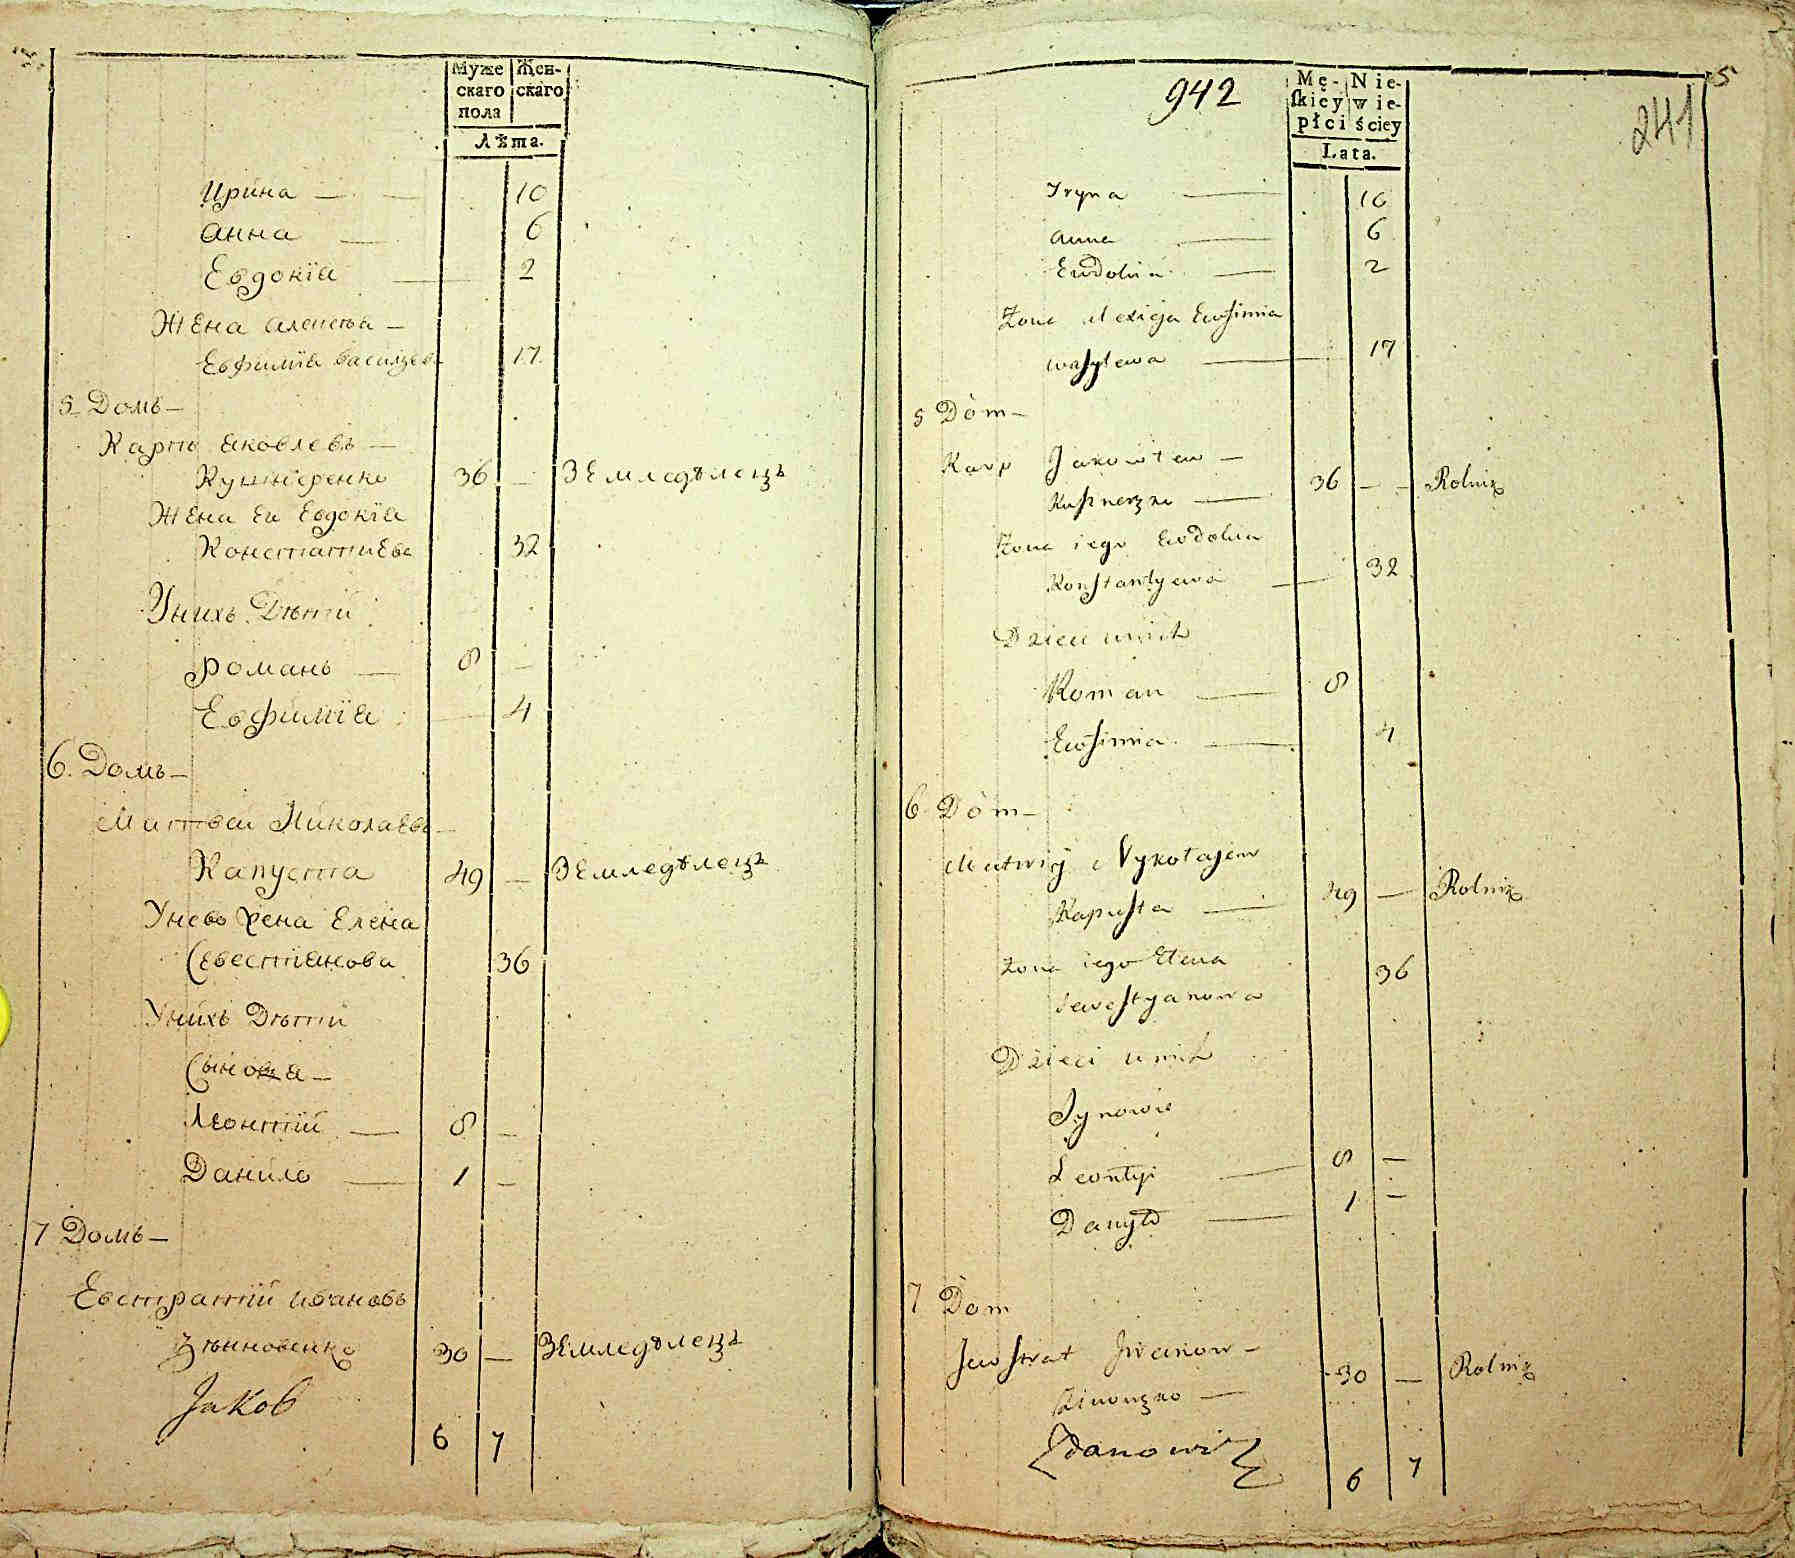 Муже Жен-
скаго скаго
пола
Лѣта.
Ирина — — 10
Анна — 6
Евдокїа — 2
Жена Алексѣа —
Евфимїа Василїева 17
5 Домъ —
Карпъ Яковлевъ —
Кушнеренко 36 — Земледѣлецъ
Жена Ег Евдокїа
Константиева 32
Унихъ Дѣтии
Романъ — 8 —
Евфимїа — 4
6. Домъ —
Матвеи Николаевъ —
Капуста 49 — Земледѣлецъ
Унево жена Елена
Севестиянова 36
Унихъ Дѣтии
Сыновя —
Леонтїй — 8 —
Данило — 1 —
7 Домъ —
Евстратїй Ивановъ
30 — Земледѣлецъ
Jakob
6 7
5
942
241
Mę- Nie-
skiey wie-
płci ściey
Lata.
Iryna — 10
Anna — 6
Ewdokia — 2
Zona Alexieja Ewfimia
Wasylewa — 17
5 Dòm —
Karp Jakowlew —
Kusznerzko — 36 — — Rolnik
Zona iego Ewdokia
Konstantyewa — 32
Dzieci unich
Roman — 8
Ewfimia — 4
6 Dòm —
Matwiy Nykołajew
Kapusta — 49 — Rolnik
Zona iego Elena
Sewestyanowa 36
Dzieci unich
Synowie
Leontyi — 8 —
Danyło — 1 —
7 Dòm
Jewstrat Iwanow —
30 — Rolnik
Zdanowicz
6 7